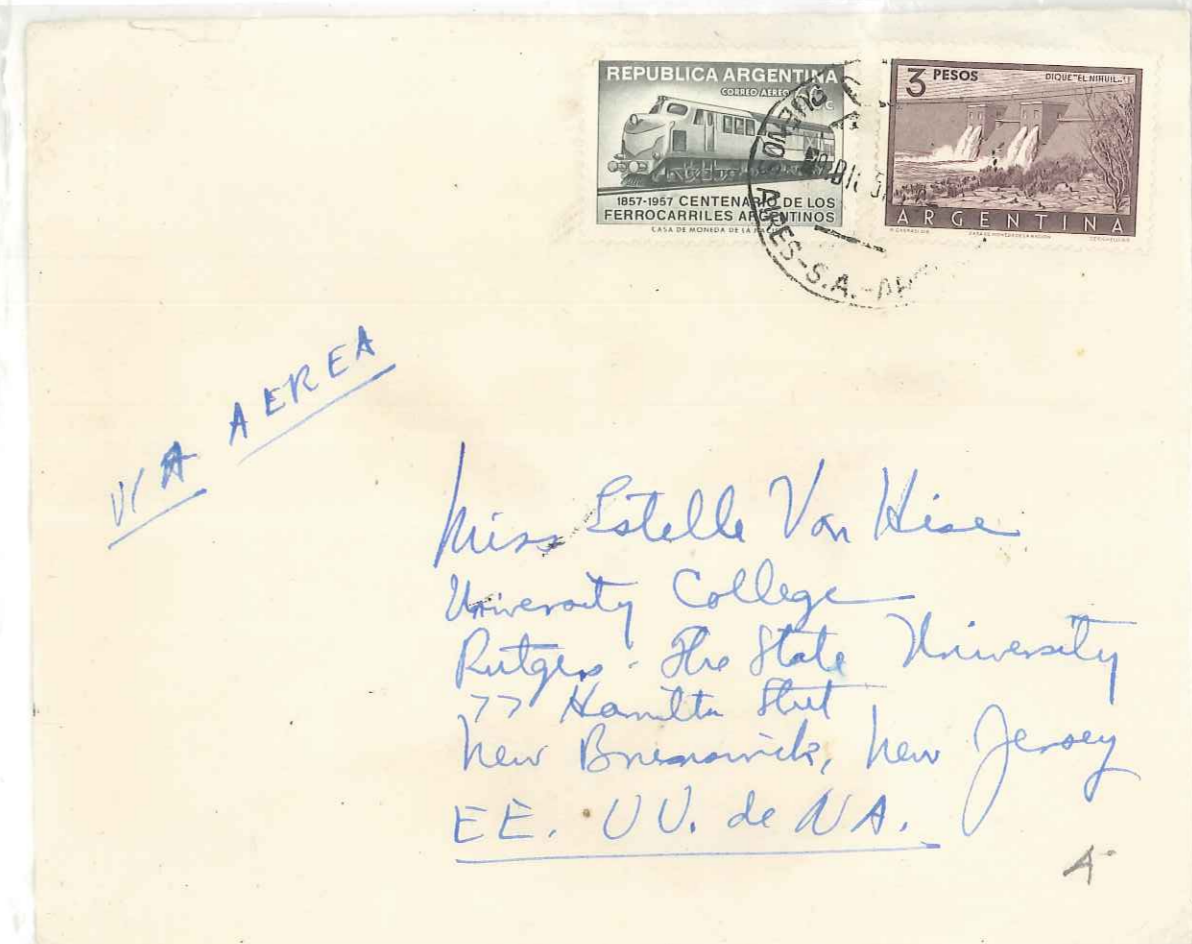 REPUBLICA ARGENTINA
CORREO AEREO
1857-1957 CENTENARIO DE LOS
FERROCARRILES ARGENTINOS
CASA DE MONEDA DE LA
3 PESOS
DIQUE "EL NIHUIL"
ARGENTINA
CASA DE MONEDA DE LA NACION
BUENOS AIRES-S.A.-
DIC
VIA AEREA
Miss Estelle Van Hise
University College
Rutgers - The State University
77 Hamilton Street
New Brunswick, New Jersey
EE. UU. de NA.
A